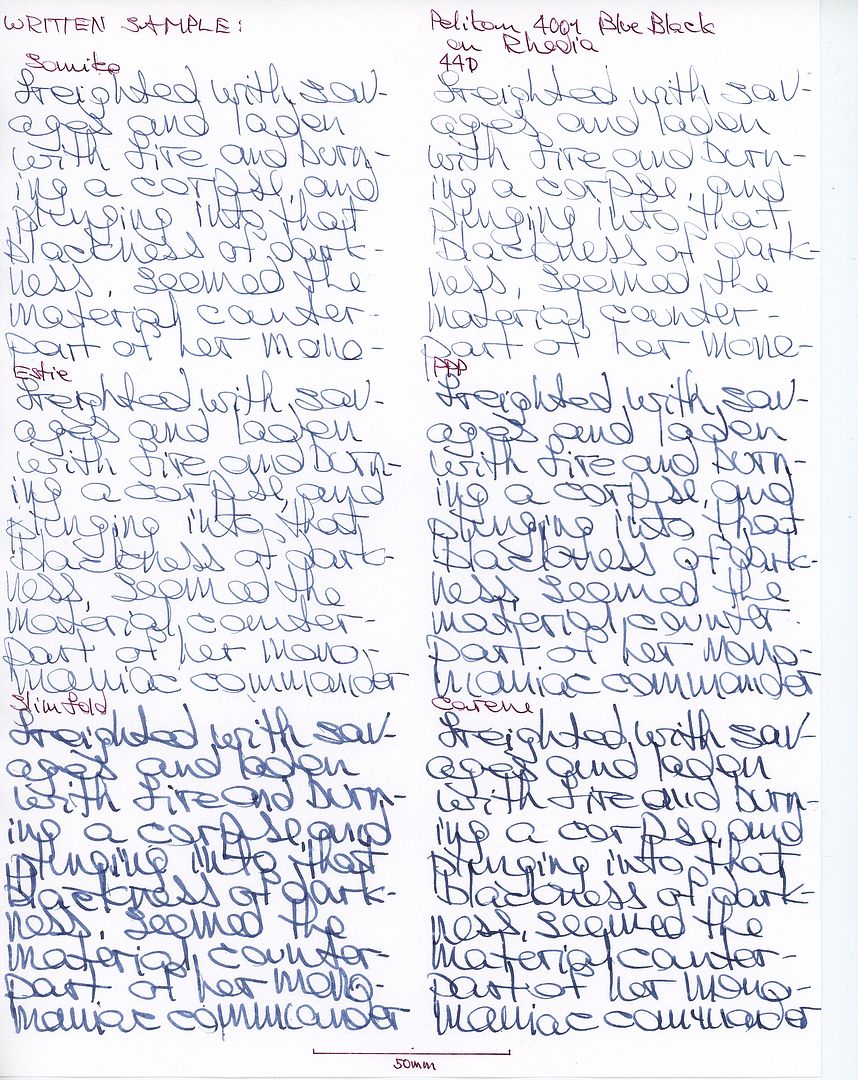 WRITTEN SAMPLE:
Pelikan 4001 Blue Black
on Rhodia
Somiko
freighted with sav-
ages and laden
with fire and burn-
ing a corpse, and
plunging into that
blackness of dark-
ness, seemed the
material counter-
part of her mono-
44D
freighted with sav-
ages and laden
with fire and burn-
ing a corpse, and
plunging into that
blackness of dark-
ness, seemed the
material counter-
part of her mono-
Estie
freighted with sav-
ages and laden
with fire and burn-
ing a corpse, and
plunging into that
blackness of dark-
ness, seemed the
material counter-
part of her mono-
maniac commander
PPP
freighted with sav-
ages and laden
with fire and burn-
ing a corpse, and
plunging into that
blackness of dark-
ness seemed the
material counter-
part of her mono-
maniac commander
Slimfold
freighted with sav-
ages and laden
with fire and burn-
ing a corpse, and
plunging into that
blackness of dark-
ness, seemed the
material counter-
part of her mono-
maniac commander
Carene
freighted with sav-
ages and laden
with fire and burn-
ing a corpse, and
plunging into that
blackness of dark-
ness, seemed the
material counter-
part of her mono-
maniac commander
50mm